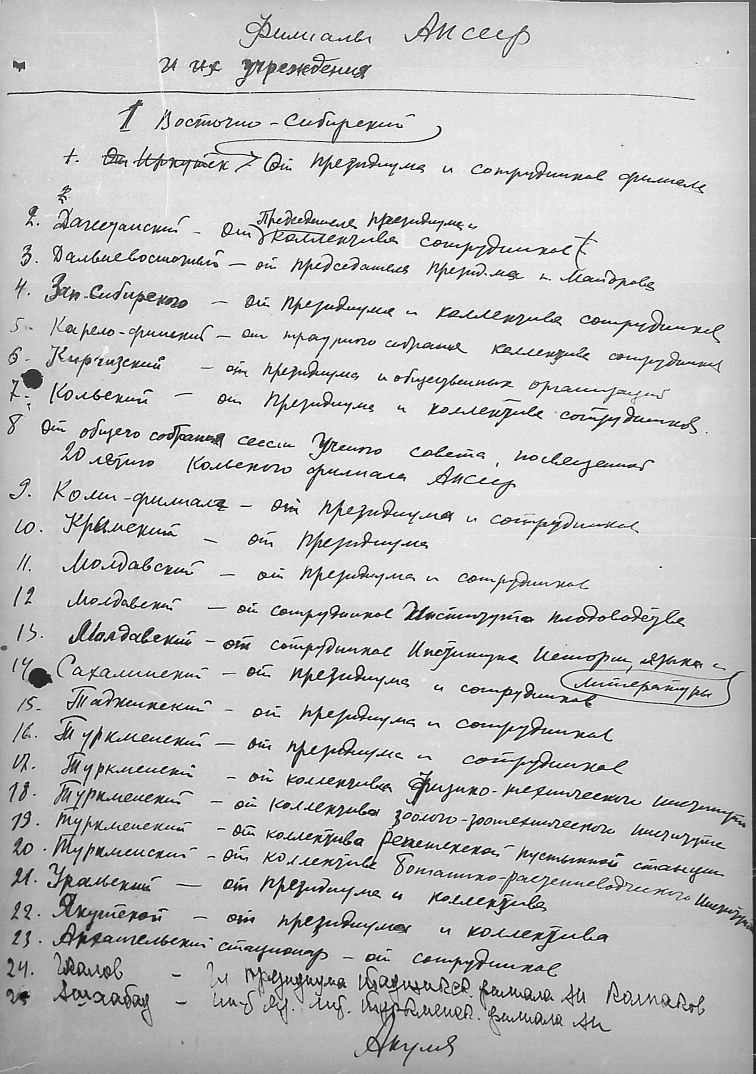 Филиалы АНСССР
и их учреждения
1 Восточно-Сибирский
1. От Иркутск От президиума и сотрудников филиала
2
2. Дагестанский - от Председателя президиума и коллектива сотрудников
3. Дальневосточный - от председателя президиума и Майорова
4. Зап-Сибирского - от президиума и коллектива сотрудников
5. Карело-финский - от траурного собрания коллектива сотрудников
6. Киргизский - от президиума и общественных организаций
7. Кольский - от президиума и коллектива сотрудников.
8 от общего собрания сессии Ученого совета, посвященной
20 летию Кольского филиала АНСССР
9. Коми-филиал - от президиума и сотрудников
10. Крымский - от президиума
11. Молдавский - от президиума и сотрудников
12 Молдавский - от сотрудников Института плодоводства
13. Молдавский - от сотрудников Института Истории, языка и
литературы
14 Сахалинский - от президиума и сотрудников
15. Таджикский - от президиума и сотрудников
16. Туркменский - от президиума и сотрудников
17. Туркменский - от коллектива Физико-технического института
18. Туркменский - от коллектива зоолого-зоотехнического института
19. Туркменский - от коллектива Репетекской пустынной станции
20. Туркменский - от коллектива Ботанико-растениеводческого Института
21. Уральский - от президиума и коллектива
22. Якутской - от президиума и коллектива
23. Архангельский стационар - от сотрудников
24. - президиума филиала АН
25 Ашхабад - филиала АН